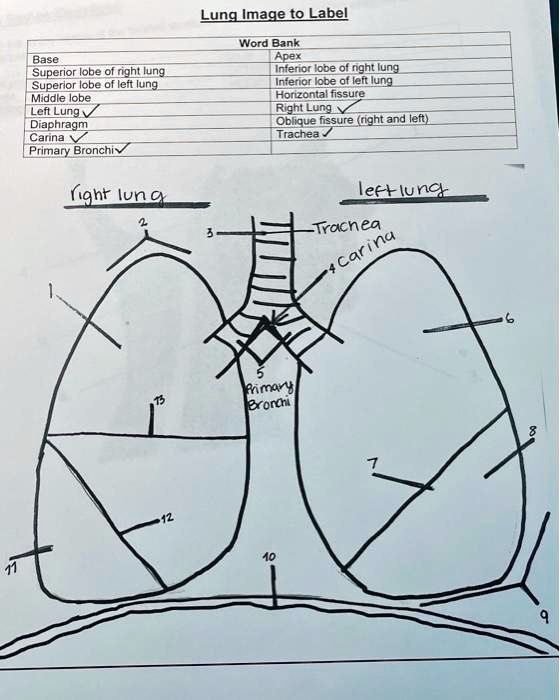 Lung Image to Label
Word Bank
Base
Apex
Superior lobe of right lung
Inferior lobe of right lung
Superior lobe of left lung
Inferior lobe of left lung
Middle lobe
Horizontal fissure
Left Lung ✓
Right Lung ✓
Diaphragm
Oblique fissure (right and left)
Carina ✓
Trachea ✓
Primary Bronchi ✓
right lung
left lung
2
3
Trachea
4 carina
1
6
5
Primary
Bronchi
13
8
7
12
11
10
9